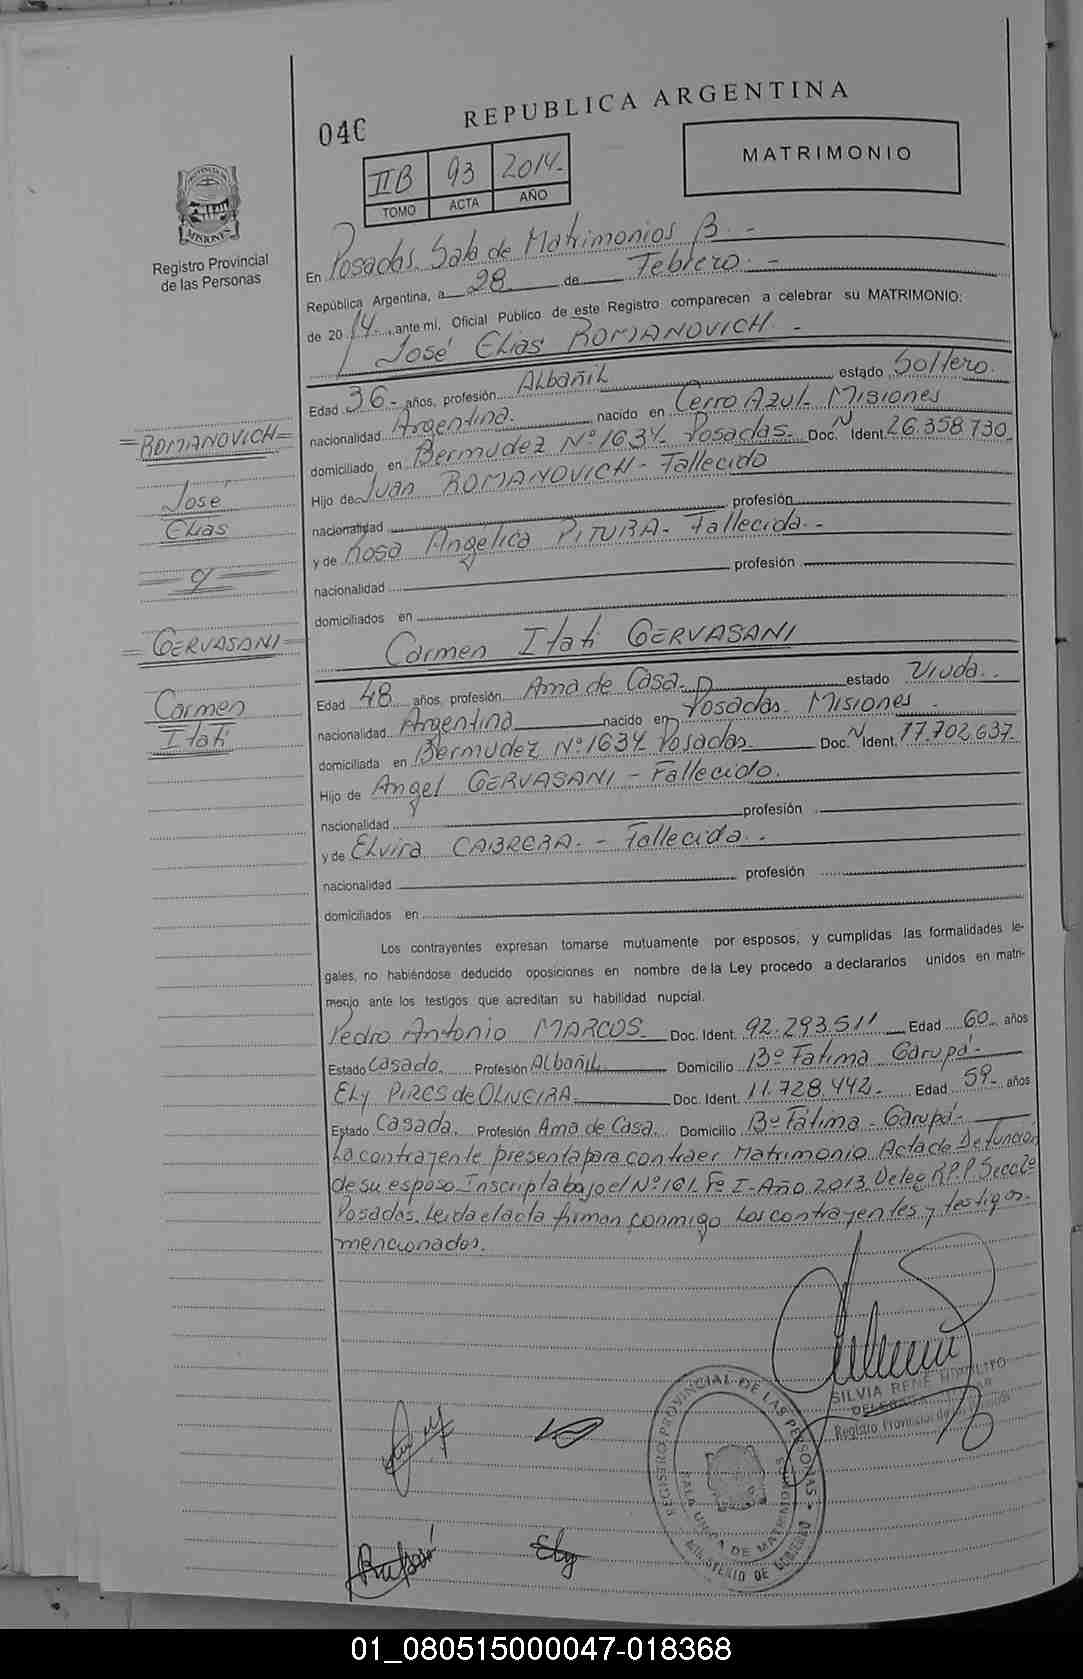 REPUBLICA ARGENTINA
04C
MATRIMONIO
IIB 93 2014.-
TOMO ACTA AÑO
PROVINCIA DE MISIONES
Registro Provincial
de las Personas
En Posadas. Sala de Matrimonios B. -
República Argentina, a 28 de Febrero. -
de 2014-, ante mi, Oficial Público de este Registro comparecen a celebrar su MATRIMONIO:
José Elias ROMANOVICH. -
Edad 36- años, profesión Albañil estado Soltero.
nacionalidad Argentina. nacido en Cerro Azul- Misiones
domiciliado en Bermudez Nº 1634- Posadas- Doc. N Ident. 26.358.730
Hijo de Juan ROMANOVICH- Fallecido
nacionalidad profesión
y de Rosa Angélica PITURA- Fallecida.-
nacionalidad profesión
domiciliados en
=ROMANOVICH=
José
Elias
y
=GERVASANI=
Carmen
Itati
Carmen Itati GERVASANI
Edad 48 años, profesión Ama de Casa- estado Viuda.
nacionalidad Argentina nacido en Posadas. Misiones -
domiciliada en Bermudez Nº 1634 Posadas. Doc. N Ident. 17.702.637-
Hijo de Angel GERVASANI - Fallecido.
nacionalidad profesión
y de Elvira CABRERA. - Fallecida. -
nacionalidad profesión
domiciliados en
Los contrayentes expresan tomarse mutuamente por esposos, y cumplidas las formalidades le-
gales, no habiéndose deducido oposiciones en nombre de la Ley procedo a declararlos unidos en matri-
monjo ante los testigos que acreditan su habilidad nupcial.
Pedro Antonio MARCOS- Doc. Ident. 92.293.511 Edad 60 años
Estado Casado. Profesión Albañil Domicilio Bº Fatima Garupá-
Ely PIRES de OLIVEIRA- Doc. Ident. 11.728.442- Edad 59- años
Estado Casada. Profesión Ama de Casa. Domicilio Bº Fátima - Garupá-
La contrayente presenta para contraer Matrimonio Acta de Defuncion
de su esposo Inscripta bajo el Nº 101- Tº I-Año 2013 Deleg R.P.P. Secc 2º
Posadas. Leida el acta firman conmigo los contrayentes y testigos
mencionados.
SILVIA RENE
Registro Provincial de las Personas
REGISTRO PROVINCIAL DE LAS PERSONAS
SALA UNICA DE MATRIMONIOS
MINISTERIO DE GOBIERNO
Ely
01_080515000047-018368